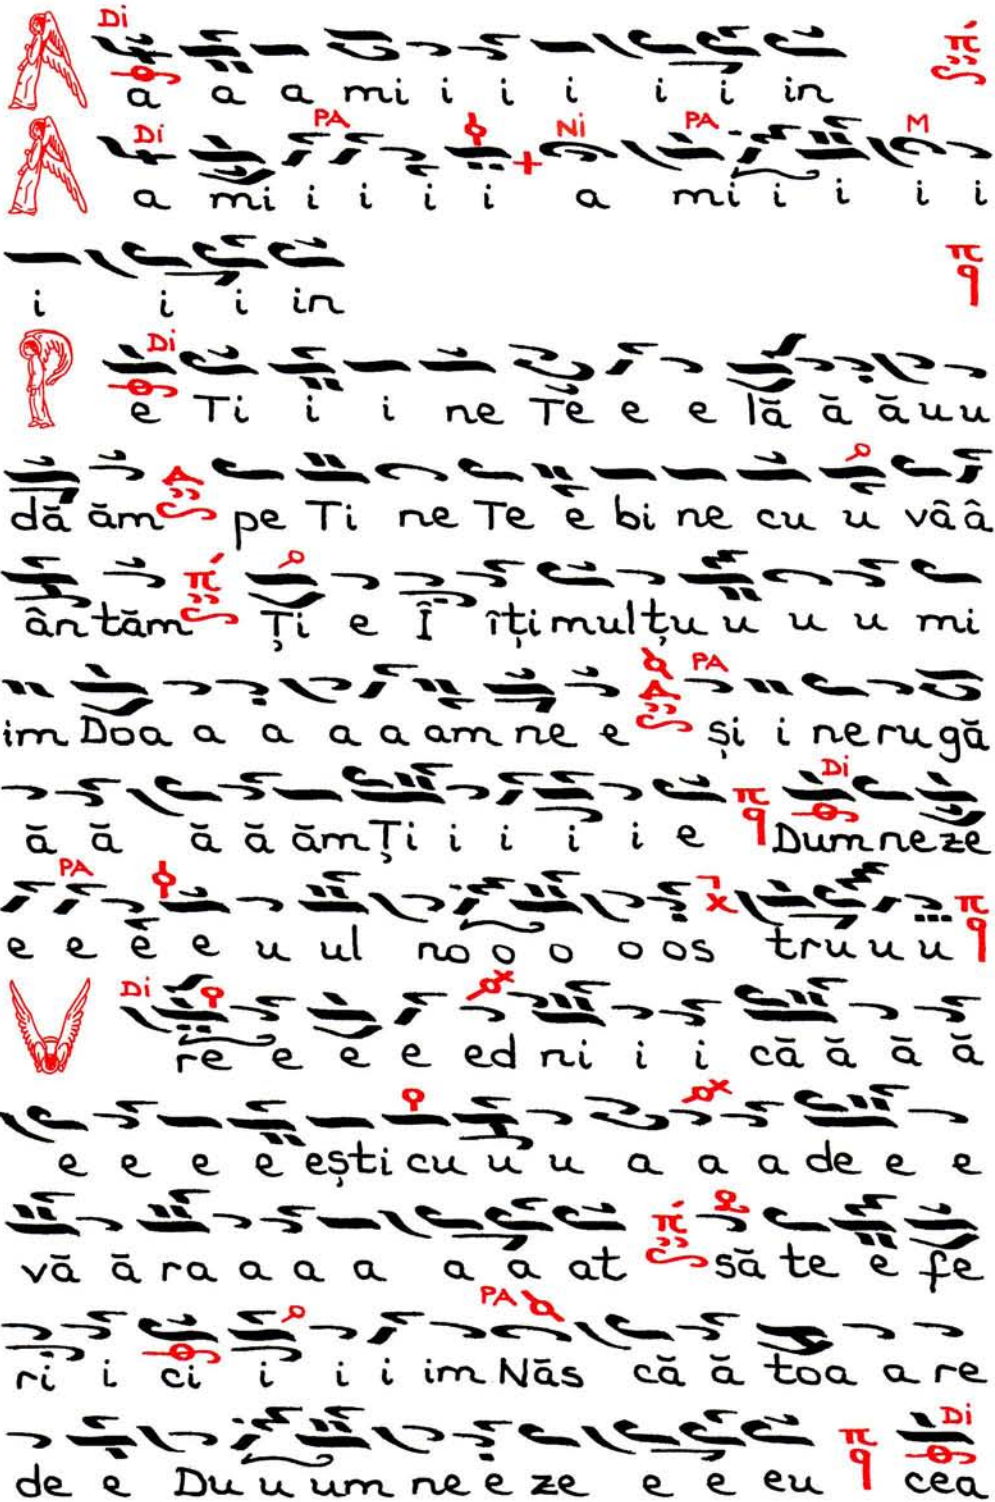 Di
A a a a mi i i i i i in π
Di PA Ni PA M
A a mi i i i i a mi i i i i
i i i in π q
Di
P e Ti i i ne Te e e lă ă ă u u
dă ăm pe Ti ne Te e bi ne cu u vâ â
ân tăm π Ți e Î îți mul țu u u u mi
PA
im Doa a a a a am ne e și i ne ru gă
Di
ă ă ă ă ăm Ți i i i i e π q Dum ne ze
PA
e e e e u ul no o o o os tru u u π q
Di
V re e e e ed ni i i că ă ă ă
e e e e ești cu u u a a a de e e
vă ă ra a a a a a at π să te e fe
PA
ri i ci i i i im Năs că ă toa a re
Di
de e Du u um ne e ze e e eu π q cea